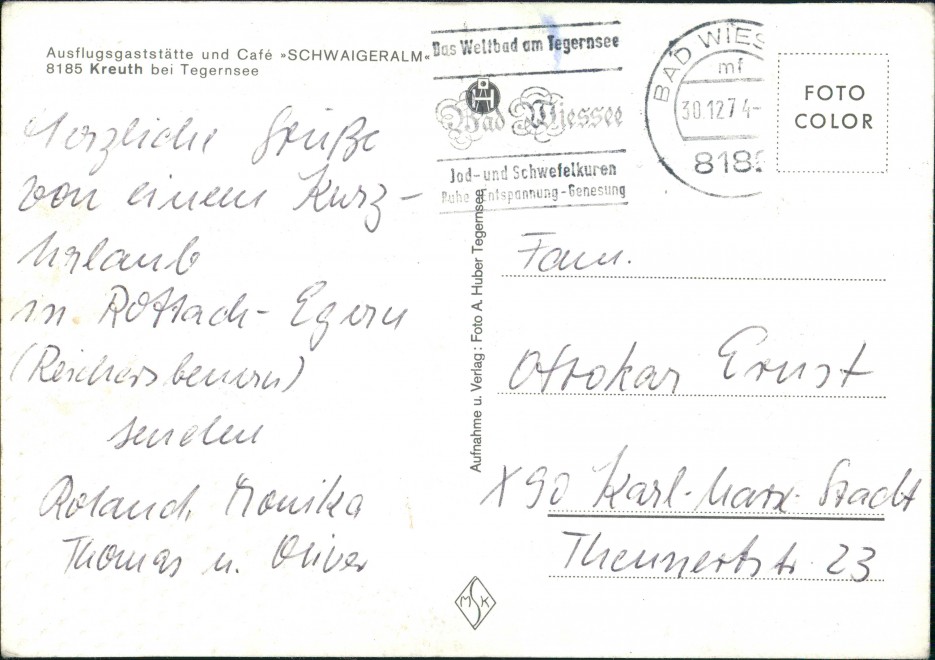 Ausflugsgaststätte und Café »SCHWAIGERALM«
8185 Kreuth bei Tegernsee
Herzliche Grüße
von einem Kurz-
Urlaub
in Rottach-Egern
(Reichersbeuern)
senden
Roland, Monika
Thomas u. Oliver
Das Weltbad am Tegernsee
Bad Wiessee
Jod- und Schwefelkuren
Ruhe Entspannung-Genesung
BAD WIES
mf
30.12.74-
818
FOTO
COLOR
Aufnahme u. Verlag: Foto A. Huber Tegernsee
Fam.
Otrokar Ernst
X90 Karl-Marx-Stadt
Thennertstr. 23
MSK